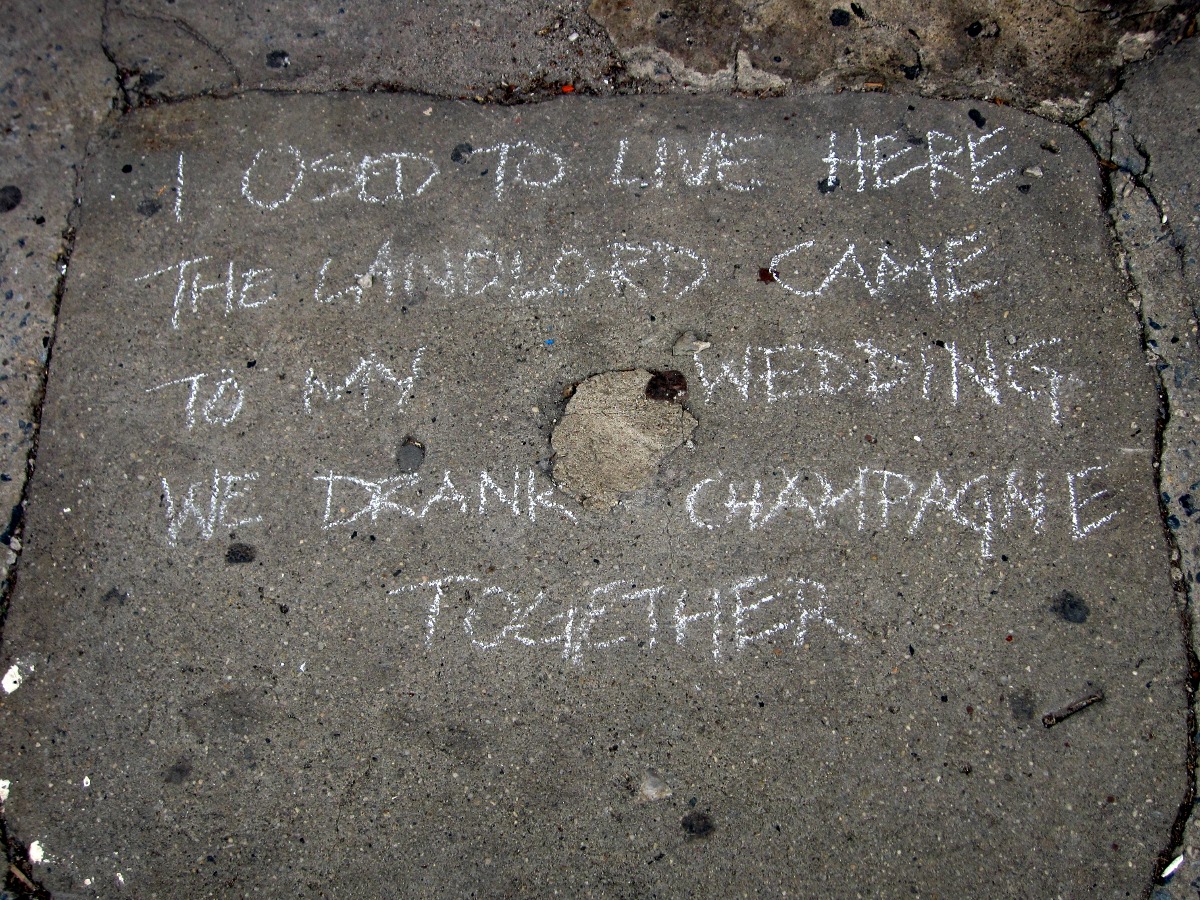 I USED TO LIVE HERE
THE LANDLORD CAME
TO MY WEDDING
WE DRANK CHAMPAGNE
TOGETHER